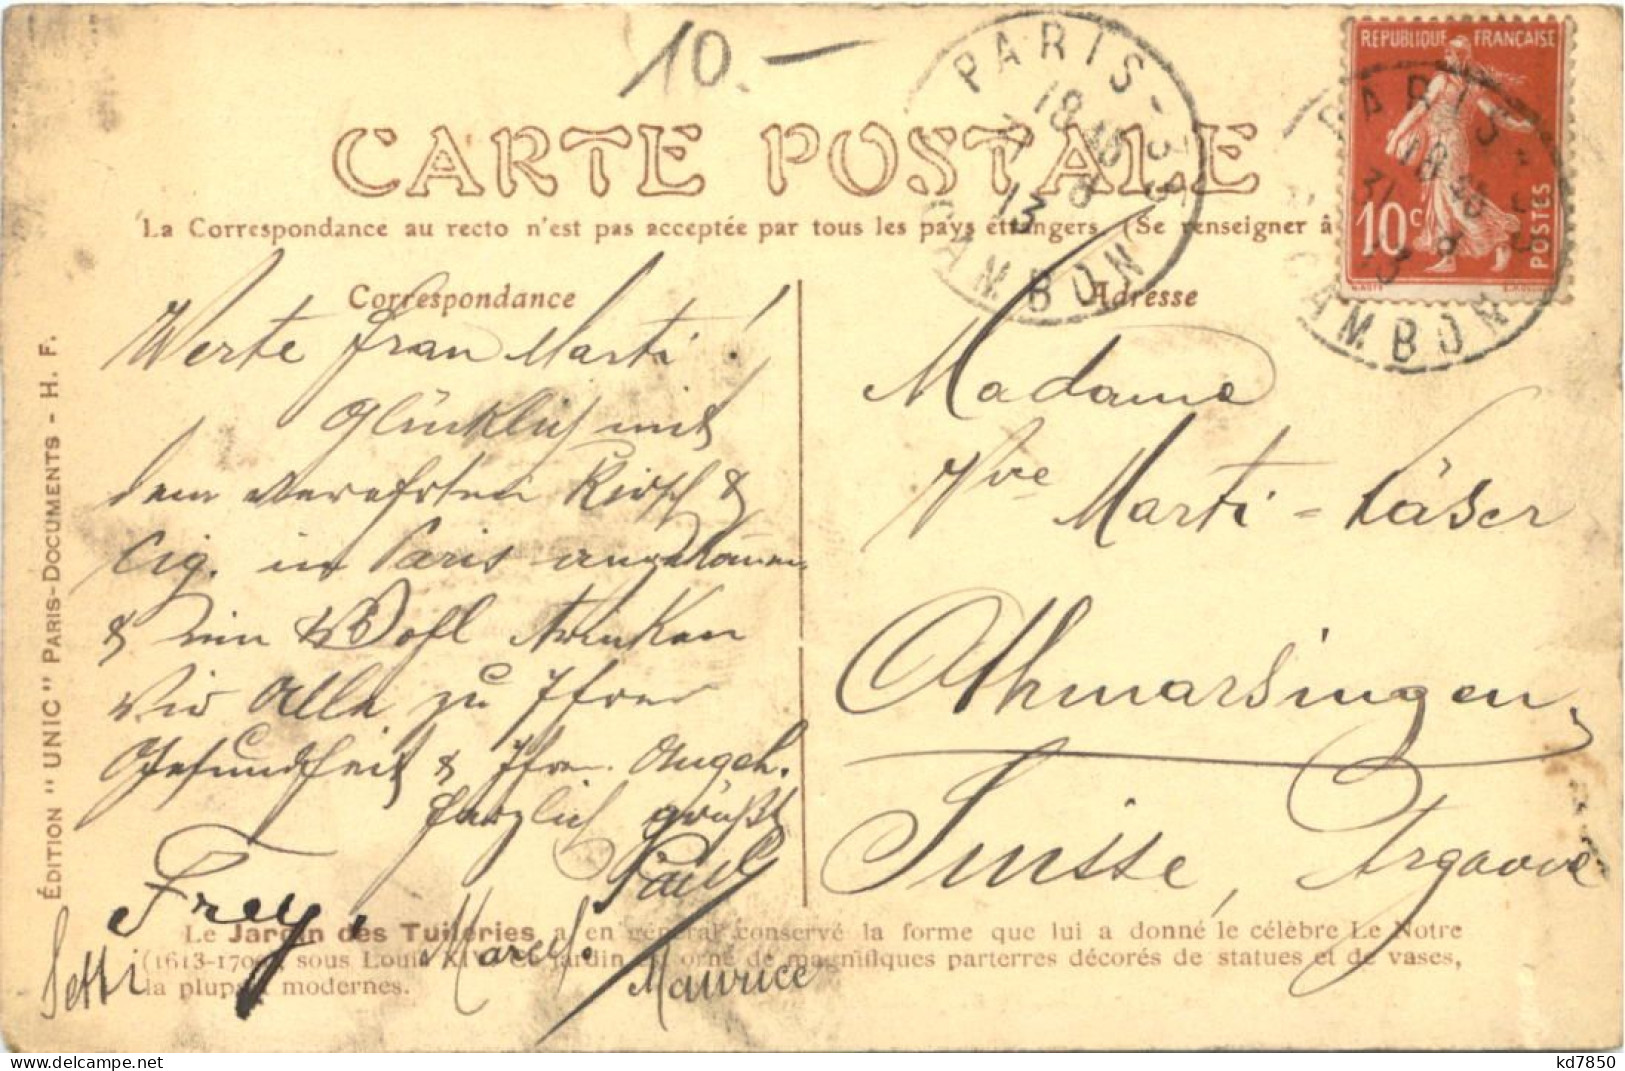 10.—
PARIS-33
18 45
31 8
13
CAMBON
REPUBLIQUE FRANÇAISE
10c
POSTES
PARIS-33
18 45
31 8
13
CAMBON
CARTE POSTALE
La Correspondance au recto n'est pas acceptée par tous les pays étrangers (Se renseigner à
Correspondance
Adresse
Werte Frau Marti!
Glücklich mit
dem verehrten Kirsch &
Cig. in Paris angekommen
& nun Wohl trinken
Wir Alle zu Ihrer
Gesundheit & Ihre Angeh.
herzlich grüßt
Paul
Frey.
Marcel.
Maurice
Madame
Vve Marti-Käser
Othmarsingen,
Suisse, Argovie
ÉDITION "UNIC" PARIS-DOCUMENTS - H. F.
Le Jardin des Tuileries a en général conservé la forme que lui a donné le célèbre Le Notre
(1613-1700), sous Louis XIV. Ce jardin orné de magnifiques parterres décorés de statues et de vases,
la plupart modernes.
kd7850